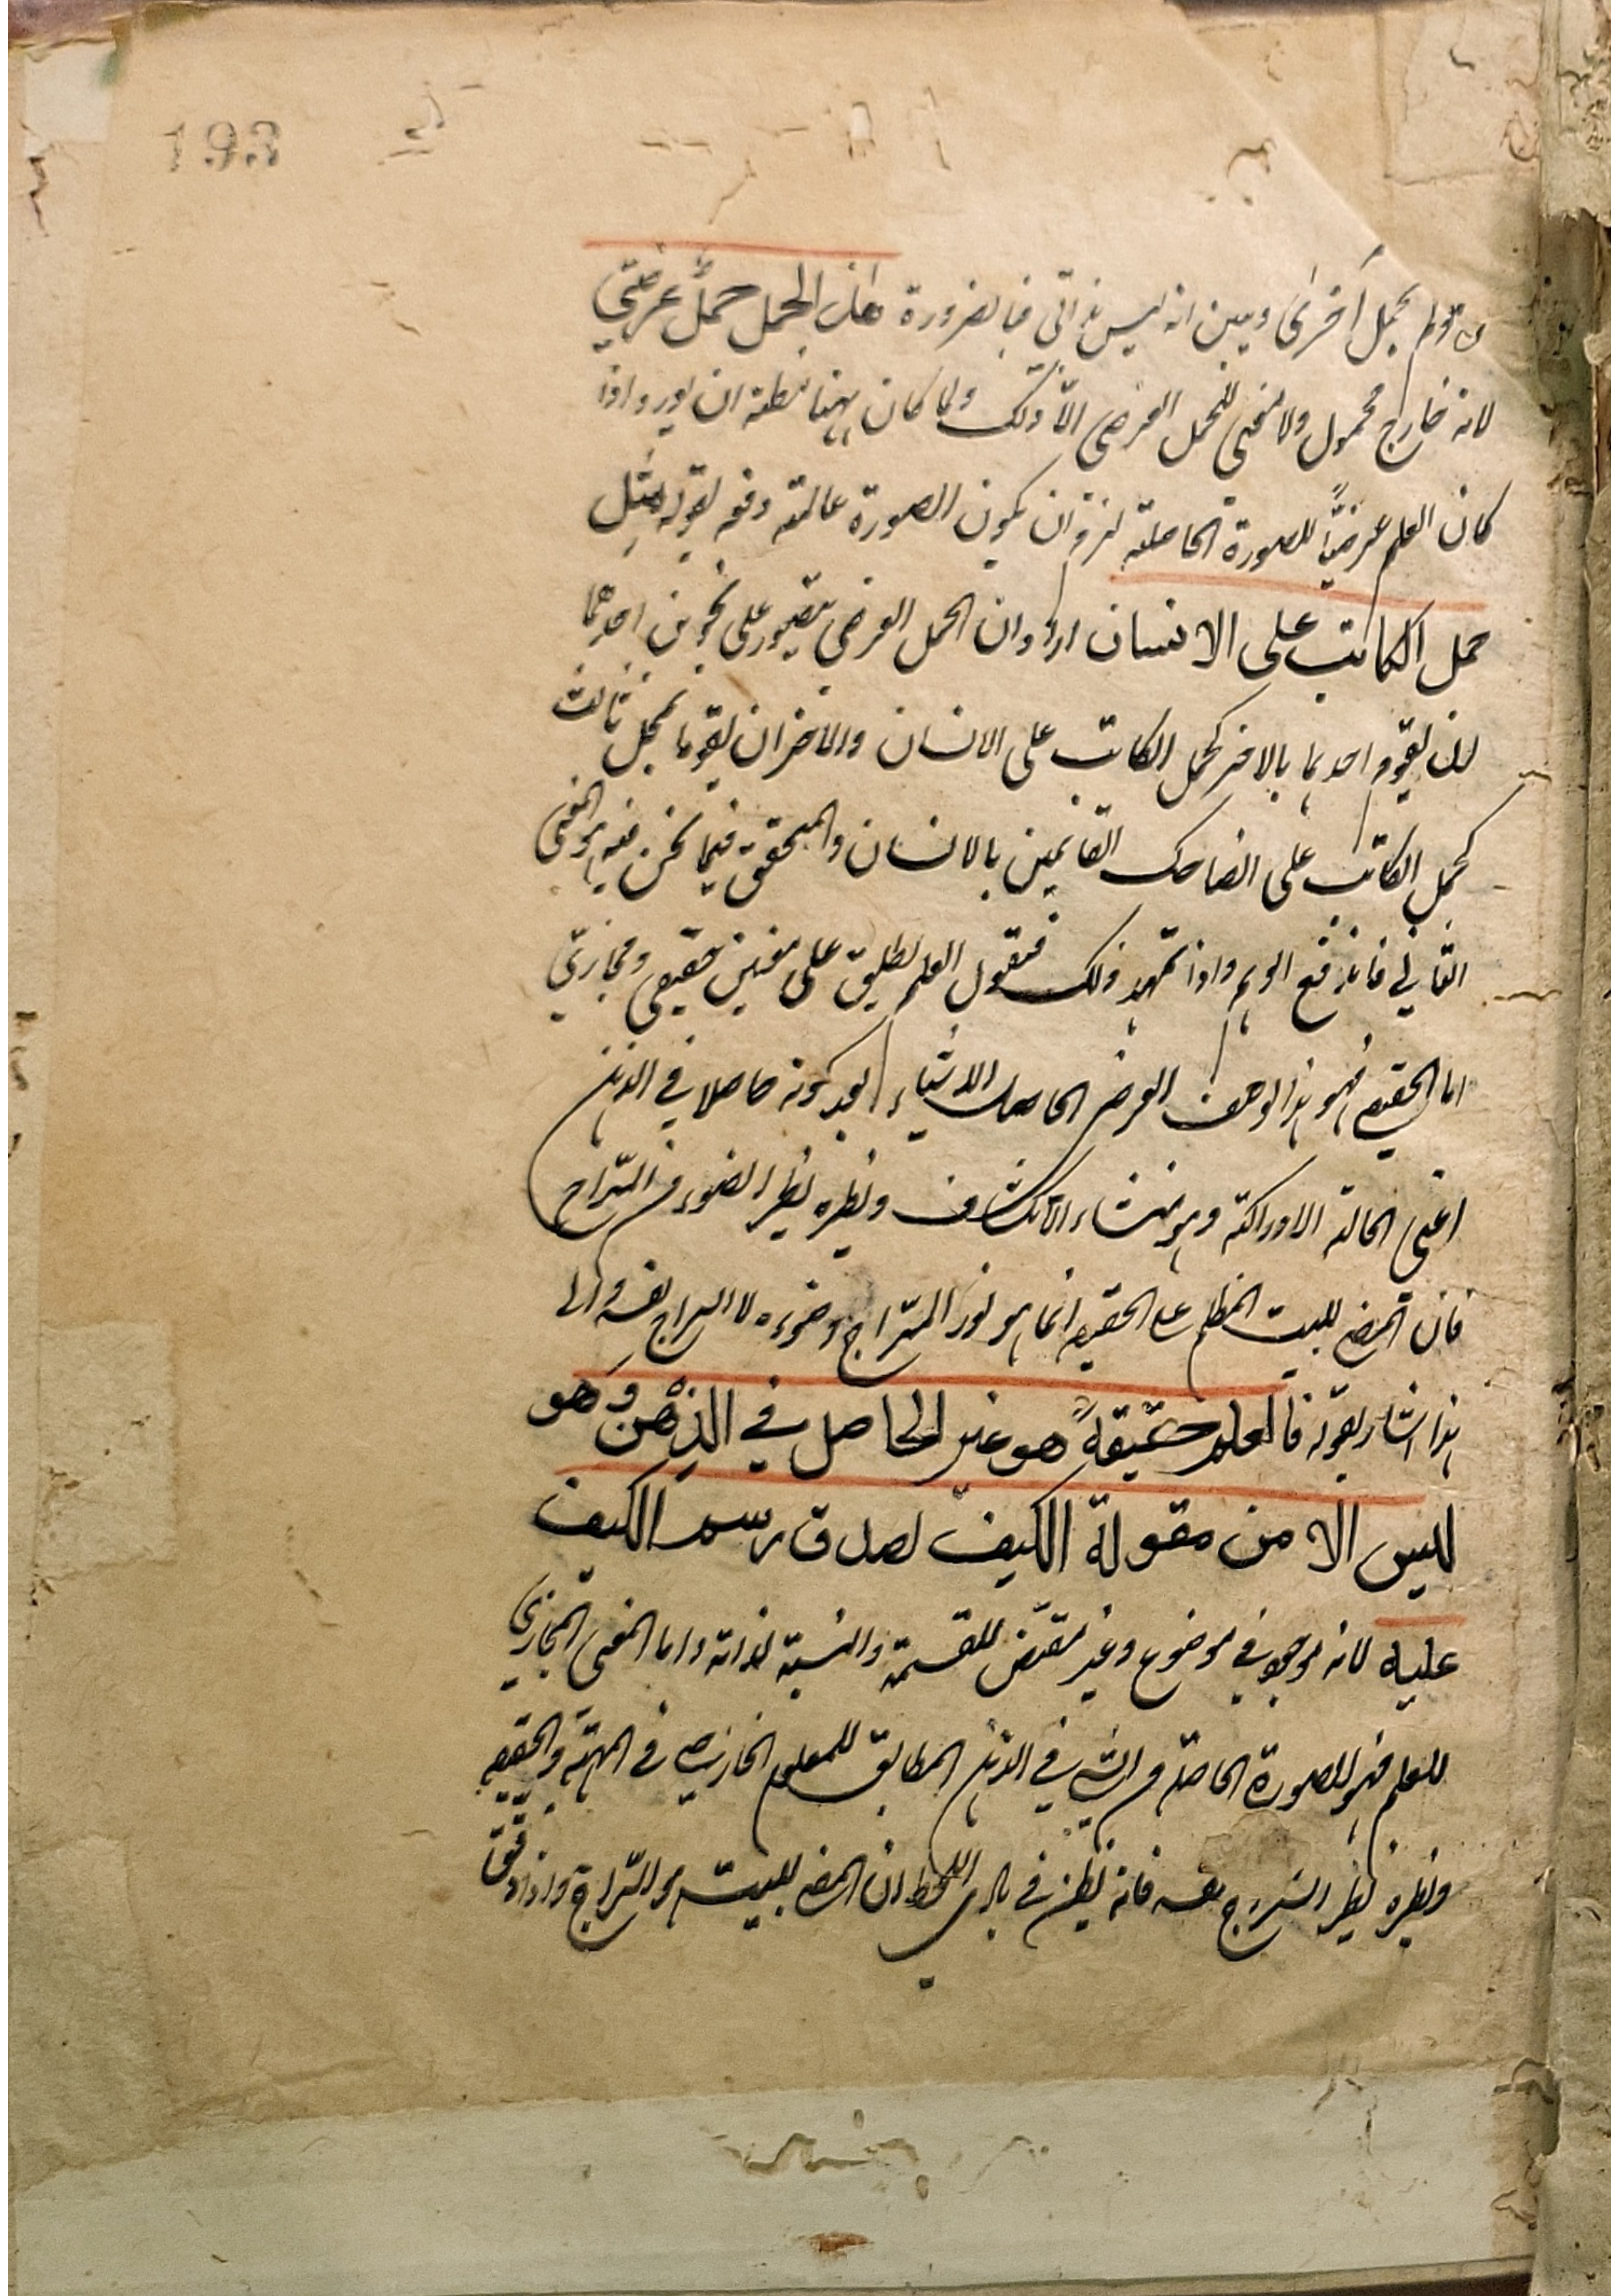 193
بحمل أخرى وبين انه ليس بذاتى فبالضرورة هذا الحمل حملٌ عرضيّ
لانه خارج محمول ولا معنى للحمل العرضى الّا ذلك ولما كان ههنا مظنة ان يورد اذا
كان العلم عرضيّاً للصورة الحاصلة لزم ان يكون الصورة عالمة دفعه بقوله مثل
حمل الكاتب على الانسان اراد ان الحمل العرضى يتصور على نحوين احدهما
ان يقوم احدهما بالاخر كحمل الكاتب على الانسان والاخر ان يقوما بمحل ثالث
كحمل الكاتب على الضاحك القائمين بالانسان والمتحقق فيما نحن فيه هو المعنى
الثانى فاندفع الوهم واذا تمهد ذلك فنقول العلم يطلق على معنيين حقيقى ومجازىّ
اما الحقيقى فهو هذا الوصف العرضى الحاصل للاشياء بعد كونه حاصلا فى الذهن
اعنى الحالة الادراكية وهو منشاء الانكشاف ونظيره نظير الضوء من السّراج
فان المضى للبيت المظلم على الحقيقة انما هو نور السّراج وضوءه لا السراج نفسه والى
هذا اشار بقوله فالعلم حقيقةً هو غير الحاصل في الذهن وهو
ليس الا من مقولة الكيف لصدق رسم الكيف
عليه لانه موجود فى موضوع وغير مقتض للقسمة والنسبة لذاته واما المعنى المجازىّ
للعلم فهو الصورة الحاصلة من الشى فى الذهن المطابق للمعلوم الخارجى فى المهيّة والحقيقة
ونظيره نظير السّراج نفسه فانه يظن فى بادى اللحظ ان المضى للبيت هو السّراج واذا دقق